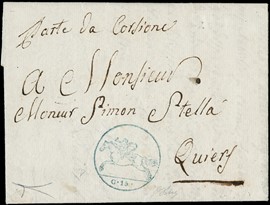 Parte da Corsione
A Monsieur
Monsieur Simon Stella
Quiers
C. 15